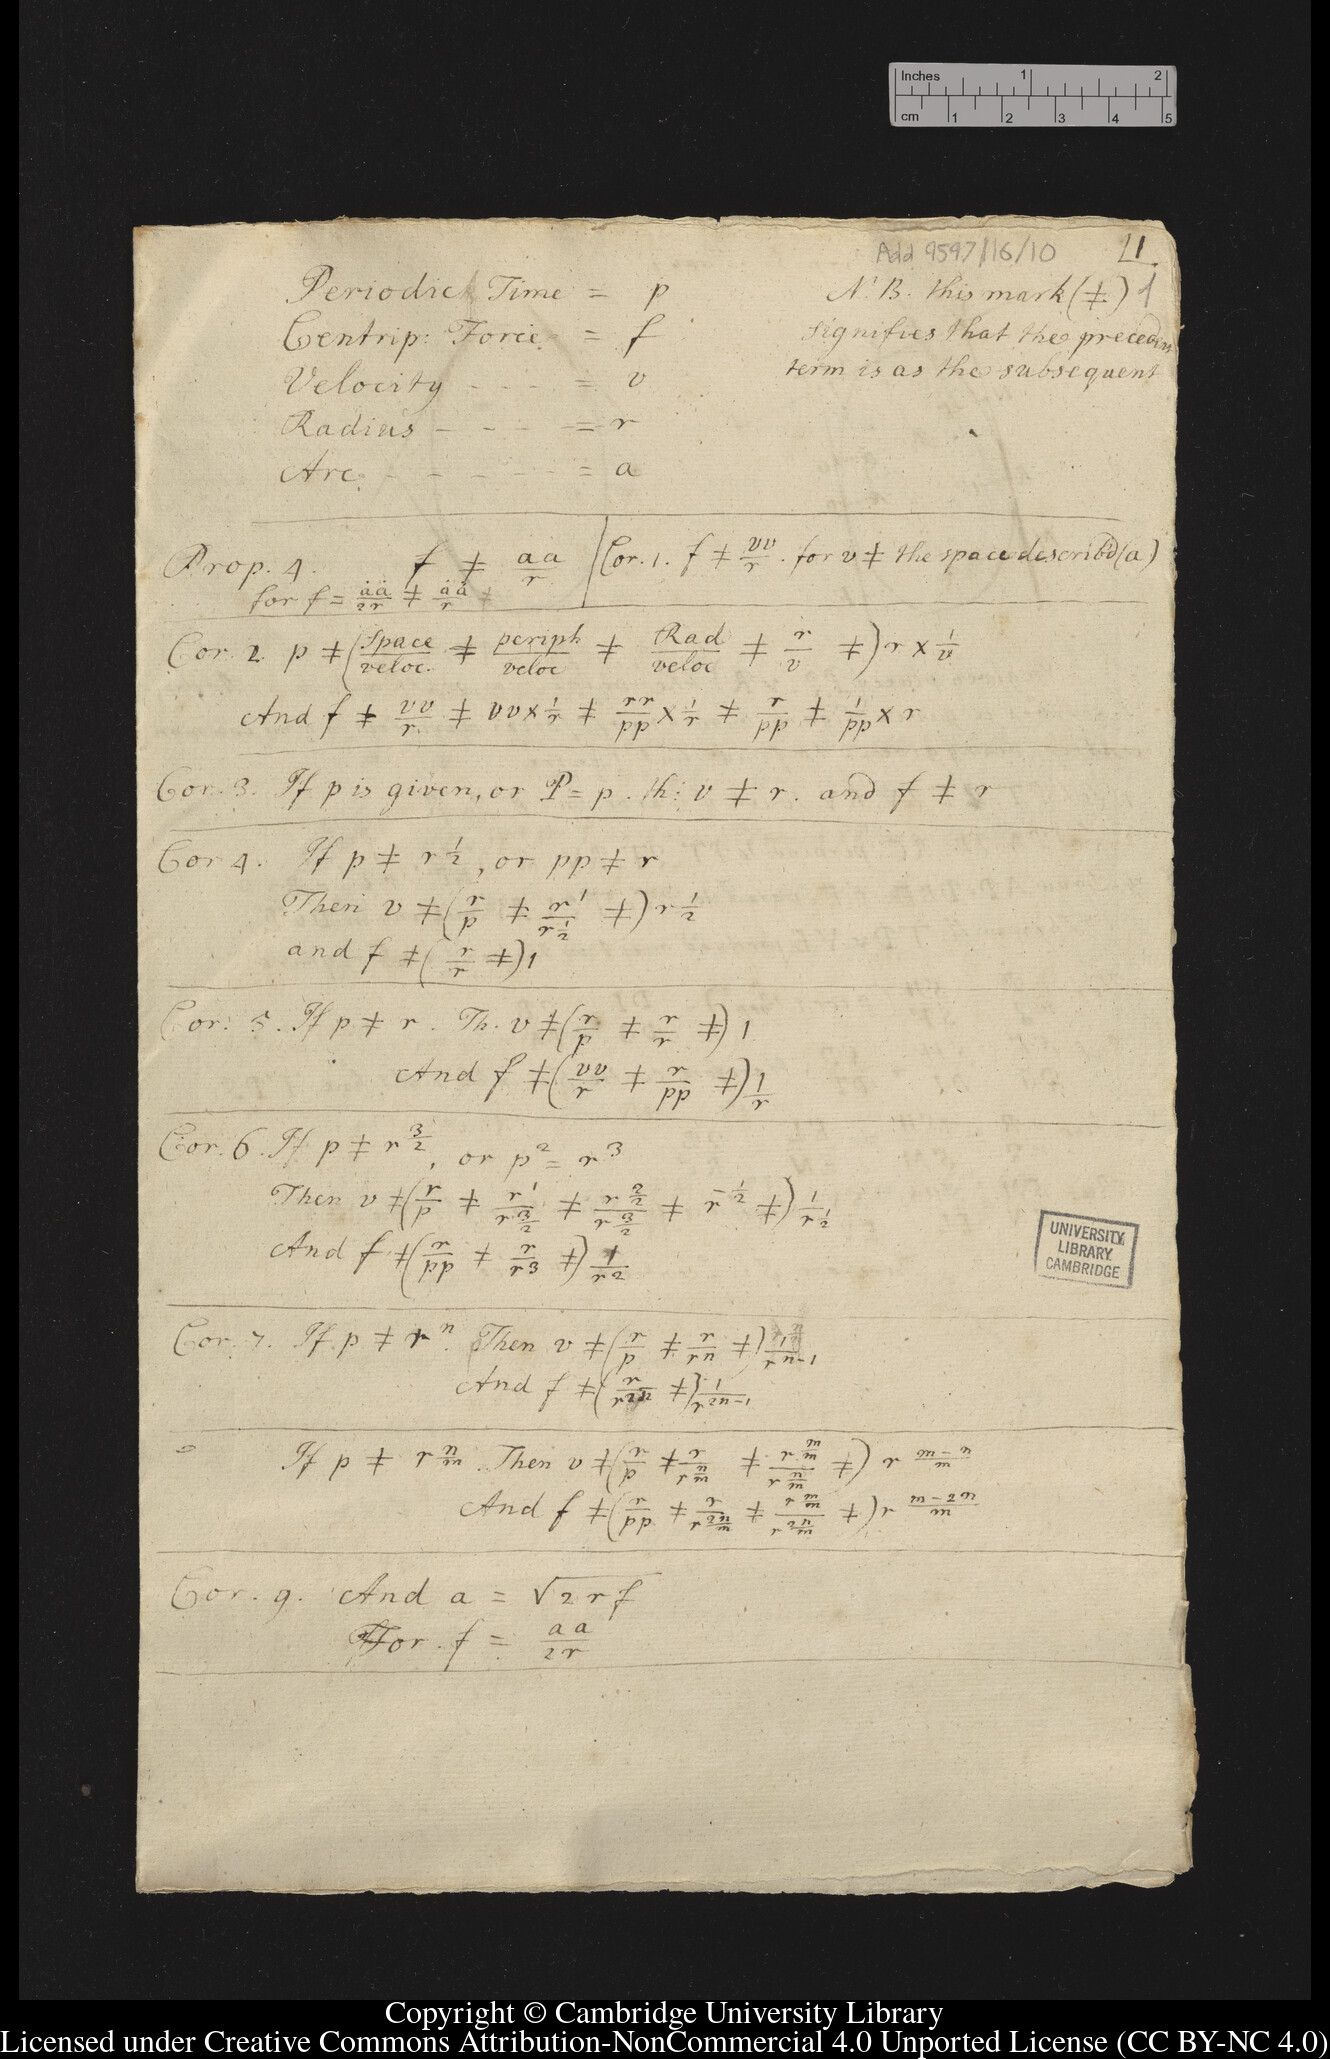 Inches 1 2
cm 1 2 3 4 5
Add 9597/16/10
Periodick Time = p
Centrip: Force = f
Velocity - - - = v
Radius - - - - = r
Arc - - - - - = a
N.B. this mark (≠)
signifies that the precedent
term is as the subsequent
Prop. 4. f ≠ aa/r
for f = ȧȧ/2r ≠ ȧȧ/r
Cor. 1. f ≠ vv/r. for v ≠ the space describd (a)
Cor. 2. p ≠ (Space/veloc. ≠ periph/veloc ≠ Rad/veloc ≠ r/v ≠) r × 1/v
And f ≠ vv/r ≠ vv × 1/r ≠ rr/pp × 1/r ≠ r/pp ≠ 1/pp × r
Cor. 3. If p is given, or P = p. th: v ≠ r. and f ≠ r
Cor 4. If p ≠ r^1/2, or pp ≠ r
Then v ≠ (r/p ≠ r^1/r^1/2 ≠) r^1/2
and f ≠ (r/r ≠) 1
Cor. 5. If p ≠ r. Th. v ≠ (r/p ≠ r/r ≠) 1
And f ≠ (vv/r ≠ r/pp ≠) 1/r
Cor. 6. If p ≠ r^3/2, or p^2 = r^3
Then v ≠ (r/p ≠ r^1/r^3/2 ≠ r^2/2/r^3/2 ≠ r^-1/2 ≠) 1/r^1/2
And f ≠ (r/pp ≠ r/r^3 ≠) 1/r^2
Cor. 7. If p ≠ r^n. Then v ≠ (r/p ≠ r/r^n ≠) 1/r^n-1
And f ≠ (r/r^2n ≠) 1/r^2n-1
If p ≠ r^n/m. Then v ≠ (r/p ≠ r/r^n/m ≠ r^m/m/r^n/m ≠) r^m-n/m
And f ≠ (r/pp ≠ r/r^2n/m ≠ r^m/m/r^2n/m ≠) r^m-2n/m
Cor. 9. And a = √2rf
For. f = aa/2r
UNIVERSITY
LIBRARY
CAMBRIDGE
Copyright © Cambridge University Library
Licensed under Creative Commons Attribution-NonCommercial 4.0 Unported License (CC BY-NC 4.0)